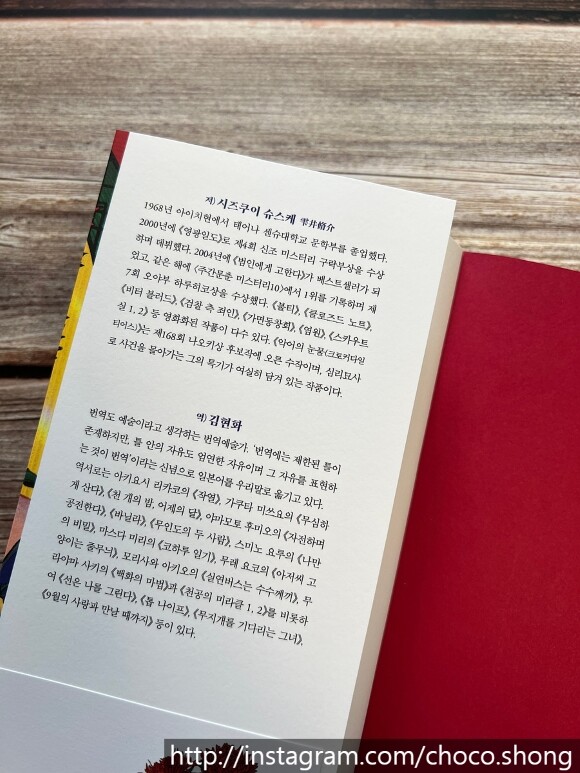 저) 시즈쿠이 슈스케 雫井脩介
1968년 아이치현에서 태어나 센슈대학교 문학부를 졸업했다.
2000년에 《영광일도》로 제4회 신조 미스터리 구락부상을 수상
하며 데뷔했다. 2004년에 《범인에게 고한다》가 베스트셀러가 되
었고, 같은 해에 〈주간문춘 미스터리10〉에서 1위를 기록하며 제
7회 오야부 하루히코상을 수상했다. 《불티》, 《클로즈드 노트》,
《비터 블러드》, 《검찰 측 죄인》, 《가면동창회》, 《염원》, 《스카우트
실 1, 2》 등 영화화된 작품이 다수 있다. 《악어의 눈물(크로커다일
티어스)》는 제168회 나오키상 후보작에 오른 수작이며, 심리묘사
로 사건을 몰아가는 그의 특기가 여실히 담겨 있는 작품이다.
역) 김현화
번역도 예술이라고 생각하는 번역예술가. '번역에는 제한된 틀이
존재하지만, 틀 안의 자유도 엄연한 자유이며 그 자유를 표현하
는 것이 번역'이라는 신념으로 일본어를 우리말로 옮기고 있다.
역서로는 아키요시 리카코의 《작열》, 가쿠타 미쓰요의 《무심하
게 산다》, 《천 개의 밤, 어제의 달》, 야마모토 후미오의 《자전하며
공전한다》, 《바닐라》, 《무인도의 두 사람》, 스미노 요루의 《나만
의 비밀》, 마스다 미리의 《코하루 일기》, 무레 요코의 《아저씨 고
양이는 줄무늬》, 모리사와 아키오의 《실연버스는 수수께끼》, 무
라야마 사키의 《백화의 마법》과 《천공의 미라클 1, 2》를 비롯하
여 《선은 나를 그린다》, 《톱 나이프》, 《무지개를 기다리는 그녀》,
《9월의 사랑과 만날 때까지》 등이 있다.
http://instagram.com/choco.shong